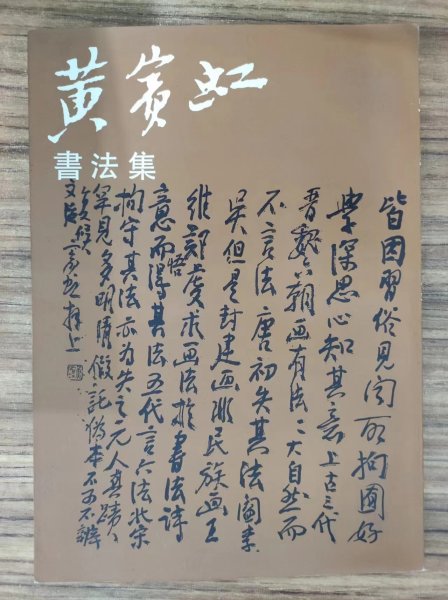 黄賓虹
書法集
皆因習俗見聞所拘囿好
學深思心知其意上古三代
晉魏六朝画有法〻大自然而
不言法唐初失其法閻李
吴但是封建画非民族画王
維鄭虔求画法於書法詩
意而悟得其法五代言六法北宋
拘守其法亦為失之元人真蹟
罕見多明清假託偽本不可不辨
候
文 賓虹拜上